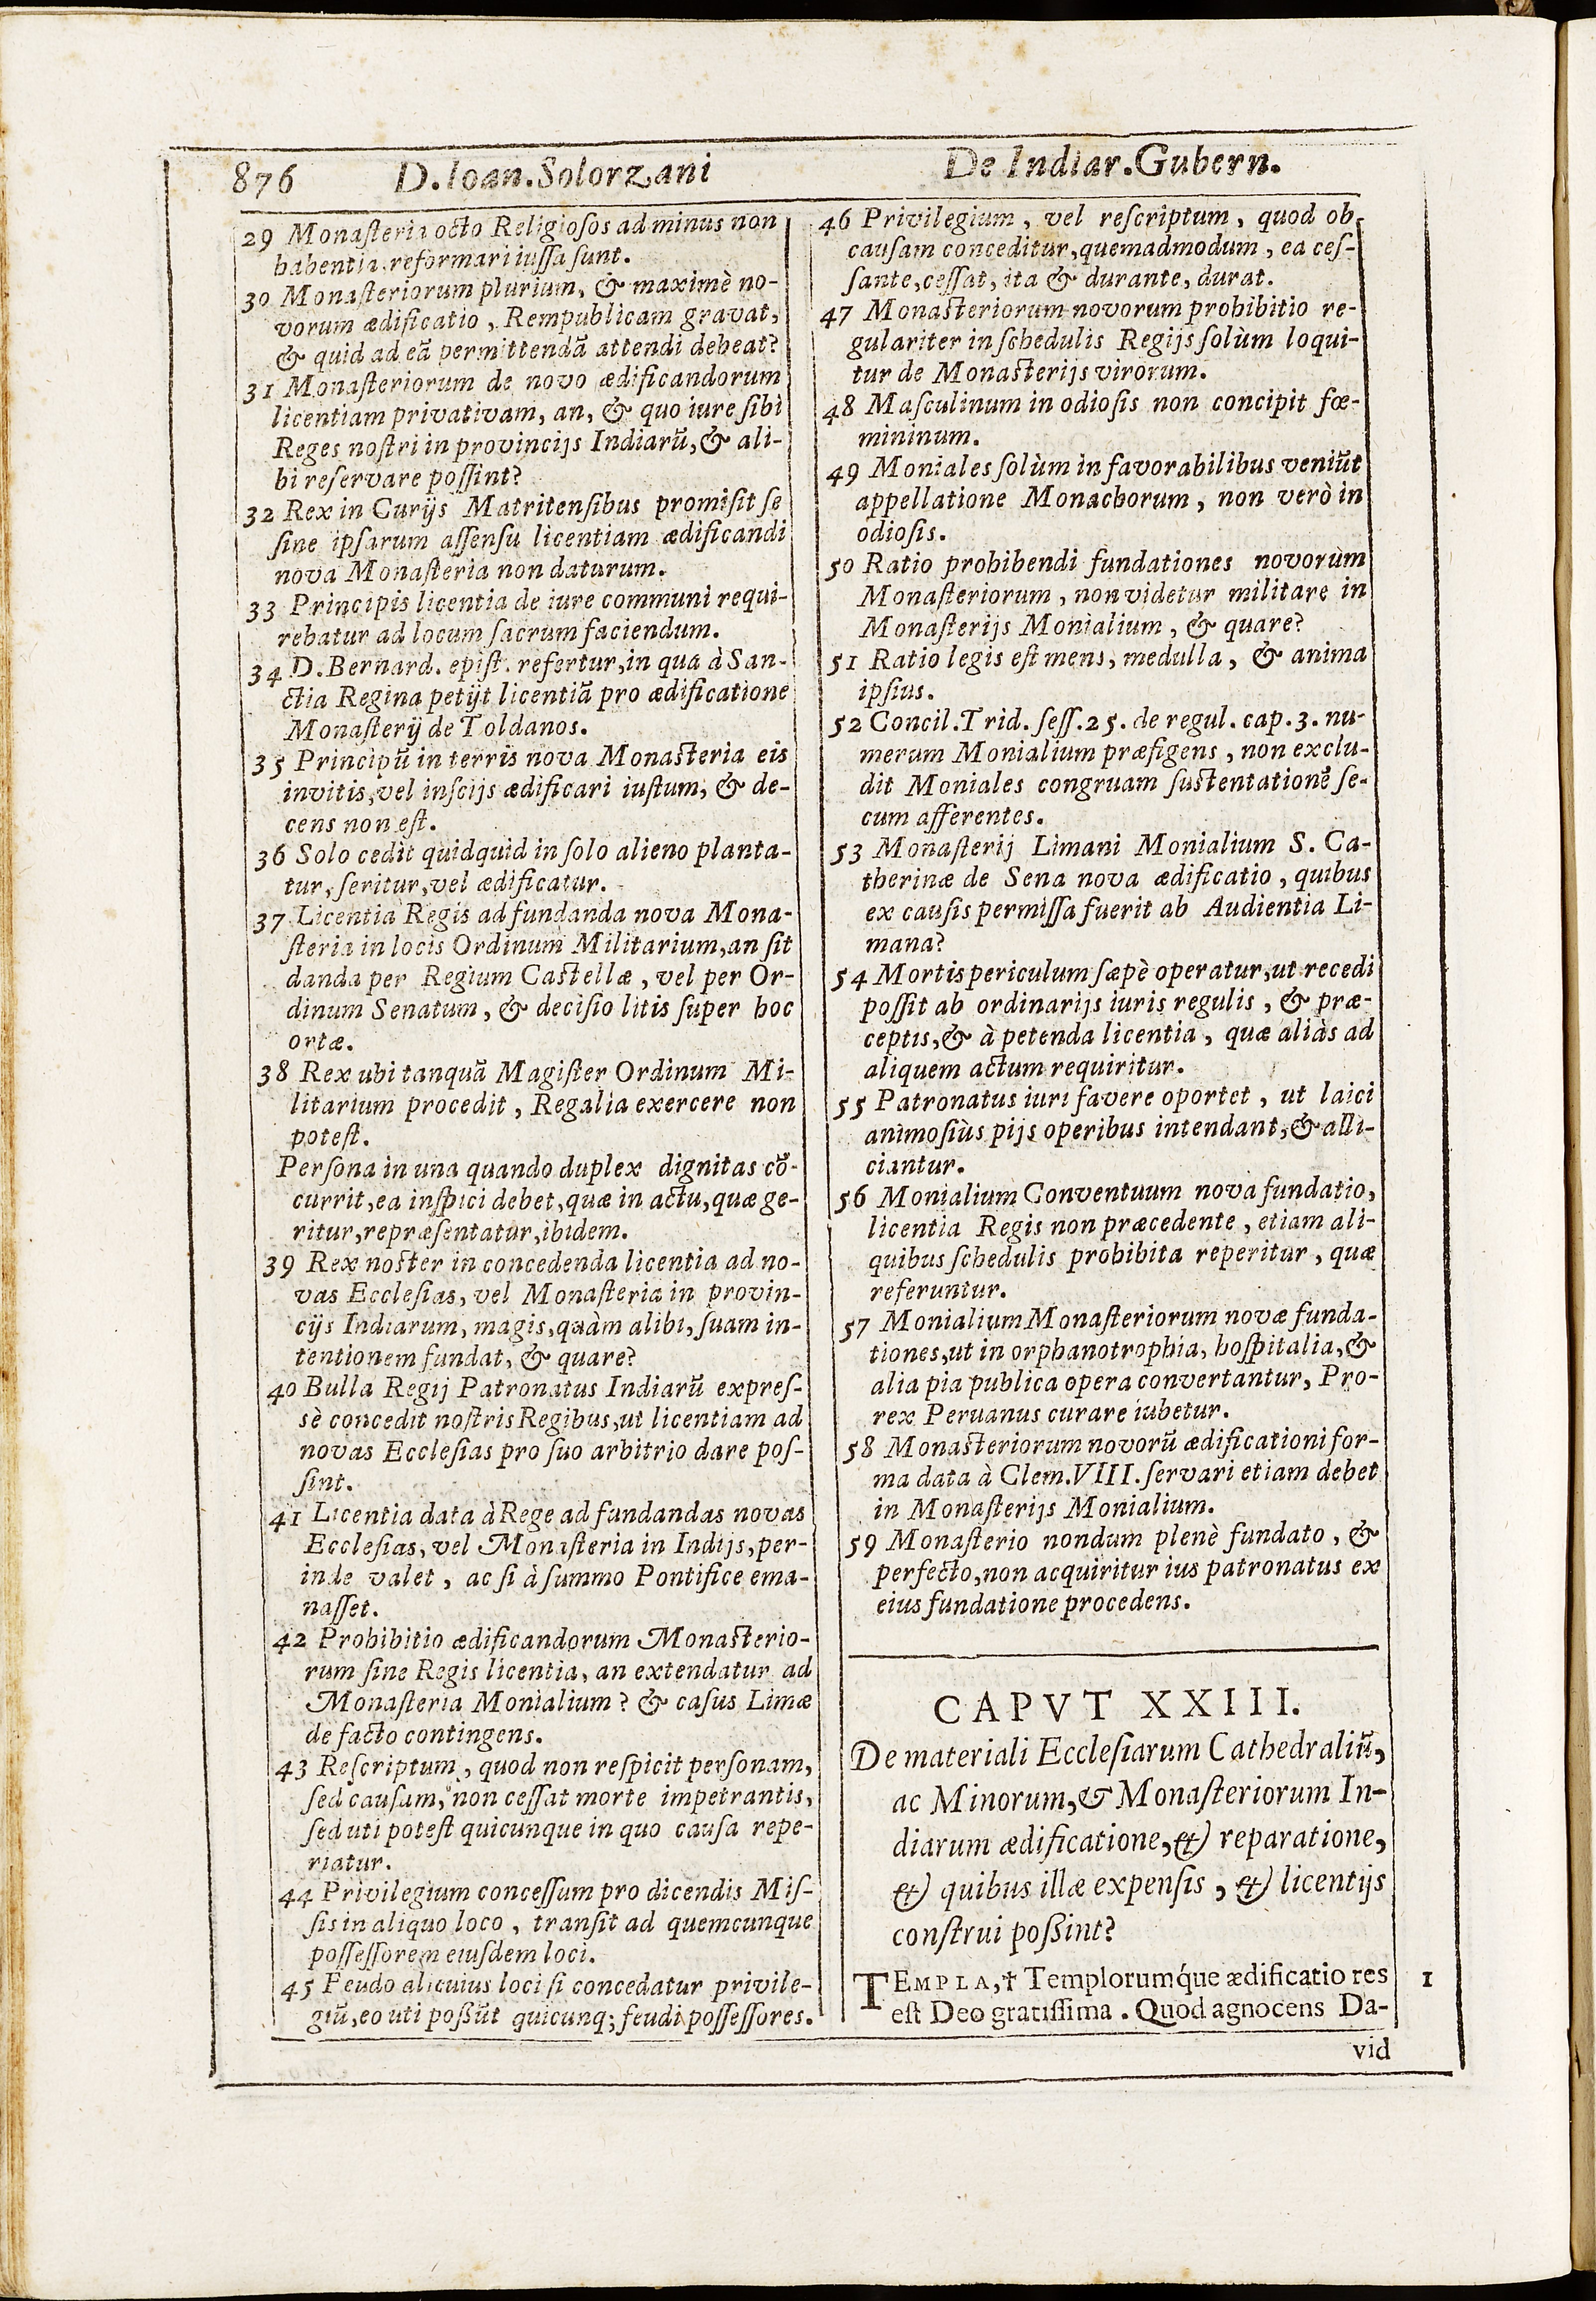 876 D.Ioan.Solorzani De Indiar.Gubern.
29 Monaſteria octo Religioſos ad minus non
habentia reformari iuſſa ſunt.
30 Monaſteriorum plurium, & maximè no-
vorum ædificatio, Rempublicam gravat,
& quid ad eã permittendã attendi debeat?
31 Monaſteriorum de novo ædificandorum
licentiam privativam, an, & quo iure ſibi
Reges noſtri in provincijs Indiarũ, & ali-
bi reſervare poſſint?
32 Rex in Curijs Matritenſibus promiſit ſe
ſine ipſarum aſſenſu licentiam ædificandi
nova Monaſteria non daturum.
33 Principis licentia de iure communi requi-
rebatur ad locum ſacrum faciendum.
34 D. Bernard. epiſt. refertur, in qua à San-
ctia Regina petijt licentiã pro ædificatione
Monaſterij de Toldanos.
35 Principũ in terris nova Monaſteria eis
invitis, vel inſcijs ædificari iuſtum, & de-
cens non eſt.
36 Solo cedit quidquid in ſolo alieno planta-
tur, ſeritur, vel ædificatur.
37 Licentia Regis ad fundanda nova Mona-
ſteria in locis Ordinum Militarium, an ſit
danda per Regium Caſtellæ, vel per Or-
dinum Senatum, & deciſio litis ſuper hoc
ortæ.
38 Rex ubi tanquã Magiſter Ordinum Mi-
litarium procedit, Regalia exercere non
poteſt.
Perſona in una quando duplex dignitas cõ-
currit, ea inſpici debet, quæ in actu, quæ ge-
ritur, repræſentatur, ibidem.
39 Rex noſter in concedenda licentia ad no-
vas Eccleſias, vel Monaſteria in provin-
cijs Indiarum, magis, quàm alibi, ſuam in-
tentionem fundat, & quare?
40 Bulla Regij Patronatus Indiarũ expreſ-
sè concedit noſtris Regibus, ut licentiam ad
novas Eccleſias pro ſuo arbitrio dare poſ-
ſint.
41 Licentia data à Rege ad fundandas novas
Eccleſias, vel Monaſteria in Indijs, per-
inde valet, ac ſi à ſummo Pontifice ema-
naſſet.
42 Prohibitio ædificandorum Monaſterio-
rum ſine Regis licentia, an extendatur ad
Monaſteria Monialium? & caſus Limæ
de facto contingens.
43 Reſcriptum, quod non reſpicit perſonam,
ſed cauſam, non ceſſat morte impetrantis,
ſed uti poteſt quicunque in quo cauſa repe-
riatur.
44 Privilegium conceſſum pro dicendis Miſ-
ſis in aliquo loco, tranſit ad quemcunque
poſſeſſorem eiuſdem loci.
45 Feudo alicuius loci ſi concedatur privile-
giũ, eo uti poßũt quicunq; feudi poſſeſſores.
46 Privilegium, vel reſcriptum, quod ob
cauſam conceditur, quemadmodum, ea ceſ-
ſante, ceſſat, ita & durante, durat.
47 Monaſteriorum novorum prohibitio re-
gulariter in ſchedulis Regijs ſolùm loqui-
tur de Monaſterijs virorum.
48 Maſculinum in odioſis non concipit fœ-
mininum.
49 Moniales ſolùm in favorabilibus veniũt
appellatione Monachorum, non verò in
odioſis.
50 Ratio prohibendi fundationes novorùm
Monaſteriorum, non videtur militare in
Monaſterijs Monialium, & quare?
51 Ratio legis eſt mens, medulla, & anima
ipſius.
52 Concil.Trid. ſeſſ.25. de regul. cap.3. nu-
merum Monialium præfigens, non exclu-
dit Moniales congruam ſuſtentationẽ ſe-
cum afferentes.
53 Monaſterij Limani Monialium S. Ca-
therinæ de Sena nova ædificatio, quibus
ex cauſis permiſſa fuerit ab Audientia Li-
mana?
54 Mortis periculum ſæpè operatur, ut recedi
poſſit ab ordinarijs iuris regulis, & præ-
ceptis, & à petenda licentia, quæ aliàs ad
aliquem actum requiritur.
55 Patronatus iuri favere oportet, ut laici
animoſiùs pijs operibus intendant, & alli-
ciantur.
56 Monialium Conventuum nova fundatio,
licentia Regis non præcedente, etiam ali-
quibus ſchedulis prohibita reperitur, quæ
referuntur.
57 Monialium Monaſteriorum novæ funda-
tiones, ut in orphanotrophia, hoſpitalia, &
alia pia publica opera convertantur, Pro-
rex Peruanus curare iubetur.
58 Monaſteriorum novorũ ædificationi for-
ma data à Clem.VIII. ſervari etiam debet
in Monaſterijs Monialium.
59 Monaſterio nondum plenè fundato, &
perfecto, non acquiritur ius patronatus ex
eius fundatione procedens.
CAPVT XXIII.
De materiali Eccleſiarum Cathedraliũ,
ac Minorum, & Monaſteriorum In-
diarum ædificatione, & reparatione,
& quibus illæ expenſis, & licentijs
conſtrui poßint?
TEMPLA, † Templorumq́ue ædificatio res 1
eſt Deo gratiſſima. Quod agnocens Da-
vid